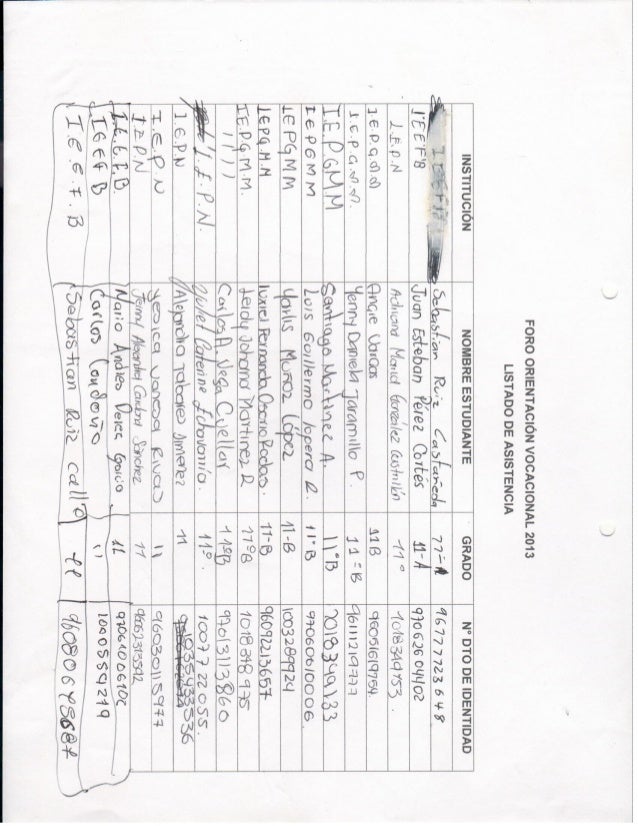 FORO ORIENTACIÓN VOCACIONAL 2013
LISTADO DE ASISTENCIA
INSTITUCIÓN NOMBRE ESTUDIANTE GRADO N° DTO DE IDENTIDAD
Sebastian Ruiz Castañeda 11-A 96777723648
I.E.E.F.B Juan Esteban Pérez Cortés 11-A 97062604402
I.E.P.N Adriana Maria González Castrillón 11° 1018349753
I.E.P.G.M.M Angie Vargas 11B 96051619754
I.E.P.G.M.M. Yenny Daniela Jaramillo P. 11=B 96111219777
I.E.PGMM Santiago Martinez A. 11°B
IEPGMM Luis Guillermo lopera R. 11°B 97060610006
IEPGMM Yarlis Muñoz López 11-B 1003289924
IEPG.M.M Luxiel Fernanda Osorio Rodas. 11-B 96092213657
I.E.P.G.M.M. Leidy Johana Martinez R 11°B 1018348975
" " " " Carlos A. Vega Cuellar 11°B 97013113860
I.E.P.N. Yuliet Caterine Echavarria. 11°. 1007722055.
I.E.P.N Alejandra Tabares Jimenez 11 1035233536
I.E.P.N Yesica Vanesa Rivas 11 96030115977
I.E.P.N Jenny Alexandra Cardona Sánchez 11
I.E.E.F.B. Mario Andres Perez Garcia 11 97061006106
IGEFB Carlos Londoño 11 1000559219
I.E.E.F.B Sebastian Ruiz calle 11